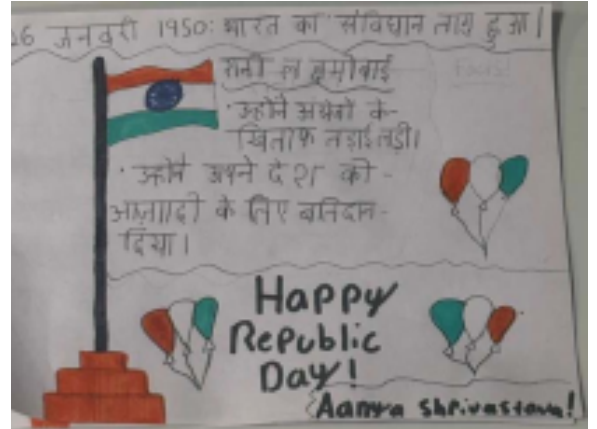 26 जनवरी 1950: भारत का संविधान लागू हुआ।
रानी लक्ष्मीबाई
· उन्होंने अंग्रेजों के-
खिलाफ लड़ाई लड़ी।
· उन्होंने अपने देश की-
आज़ादी के लिए बलिदान-
दिया।
Happy
Republic
Day!
Aanya Shrivastava!